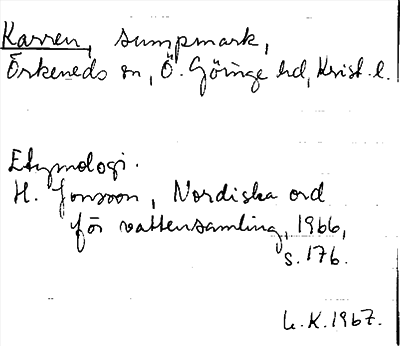 Karren, sumpmark,
Örkeneds sn, Ö. Göinge hd, Krist. l.
Etymologi.
H. Jonsson, Nordiska ord
för vattensamling, 1966,
s. 176.
L.K. 1967.